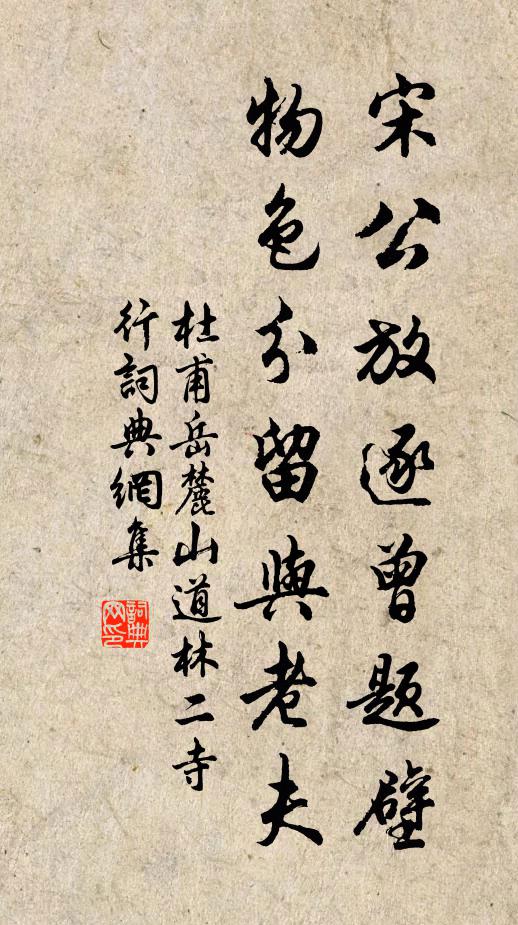 宋公放逐曾题壁
物色分留與老夫
杜甫岳麓山道林二寺
行詞典網集
詞典
网印